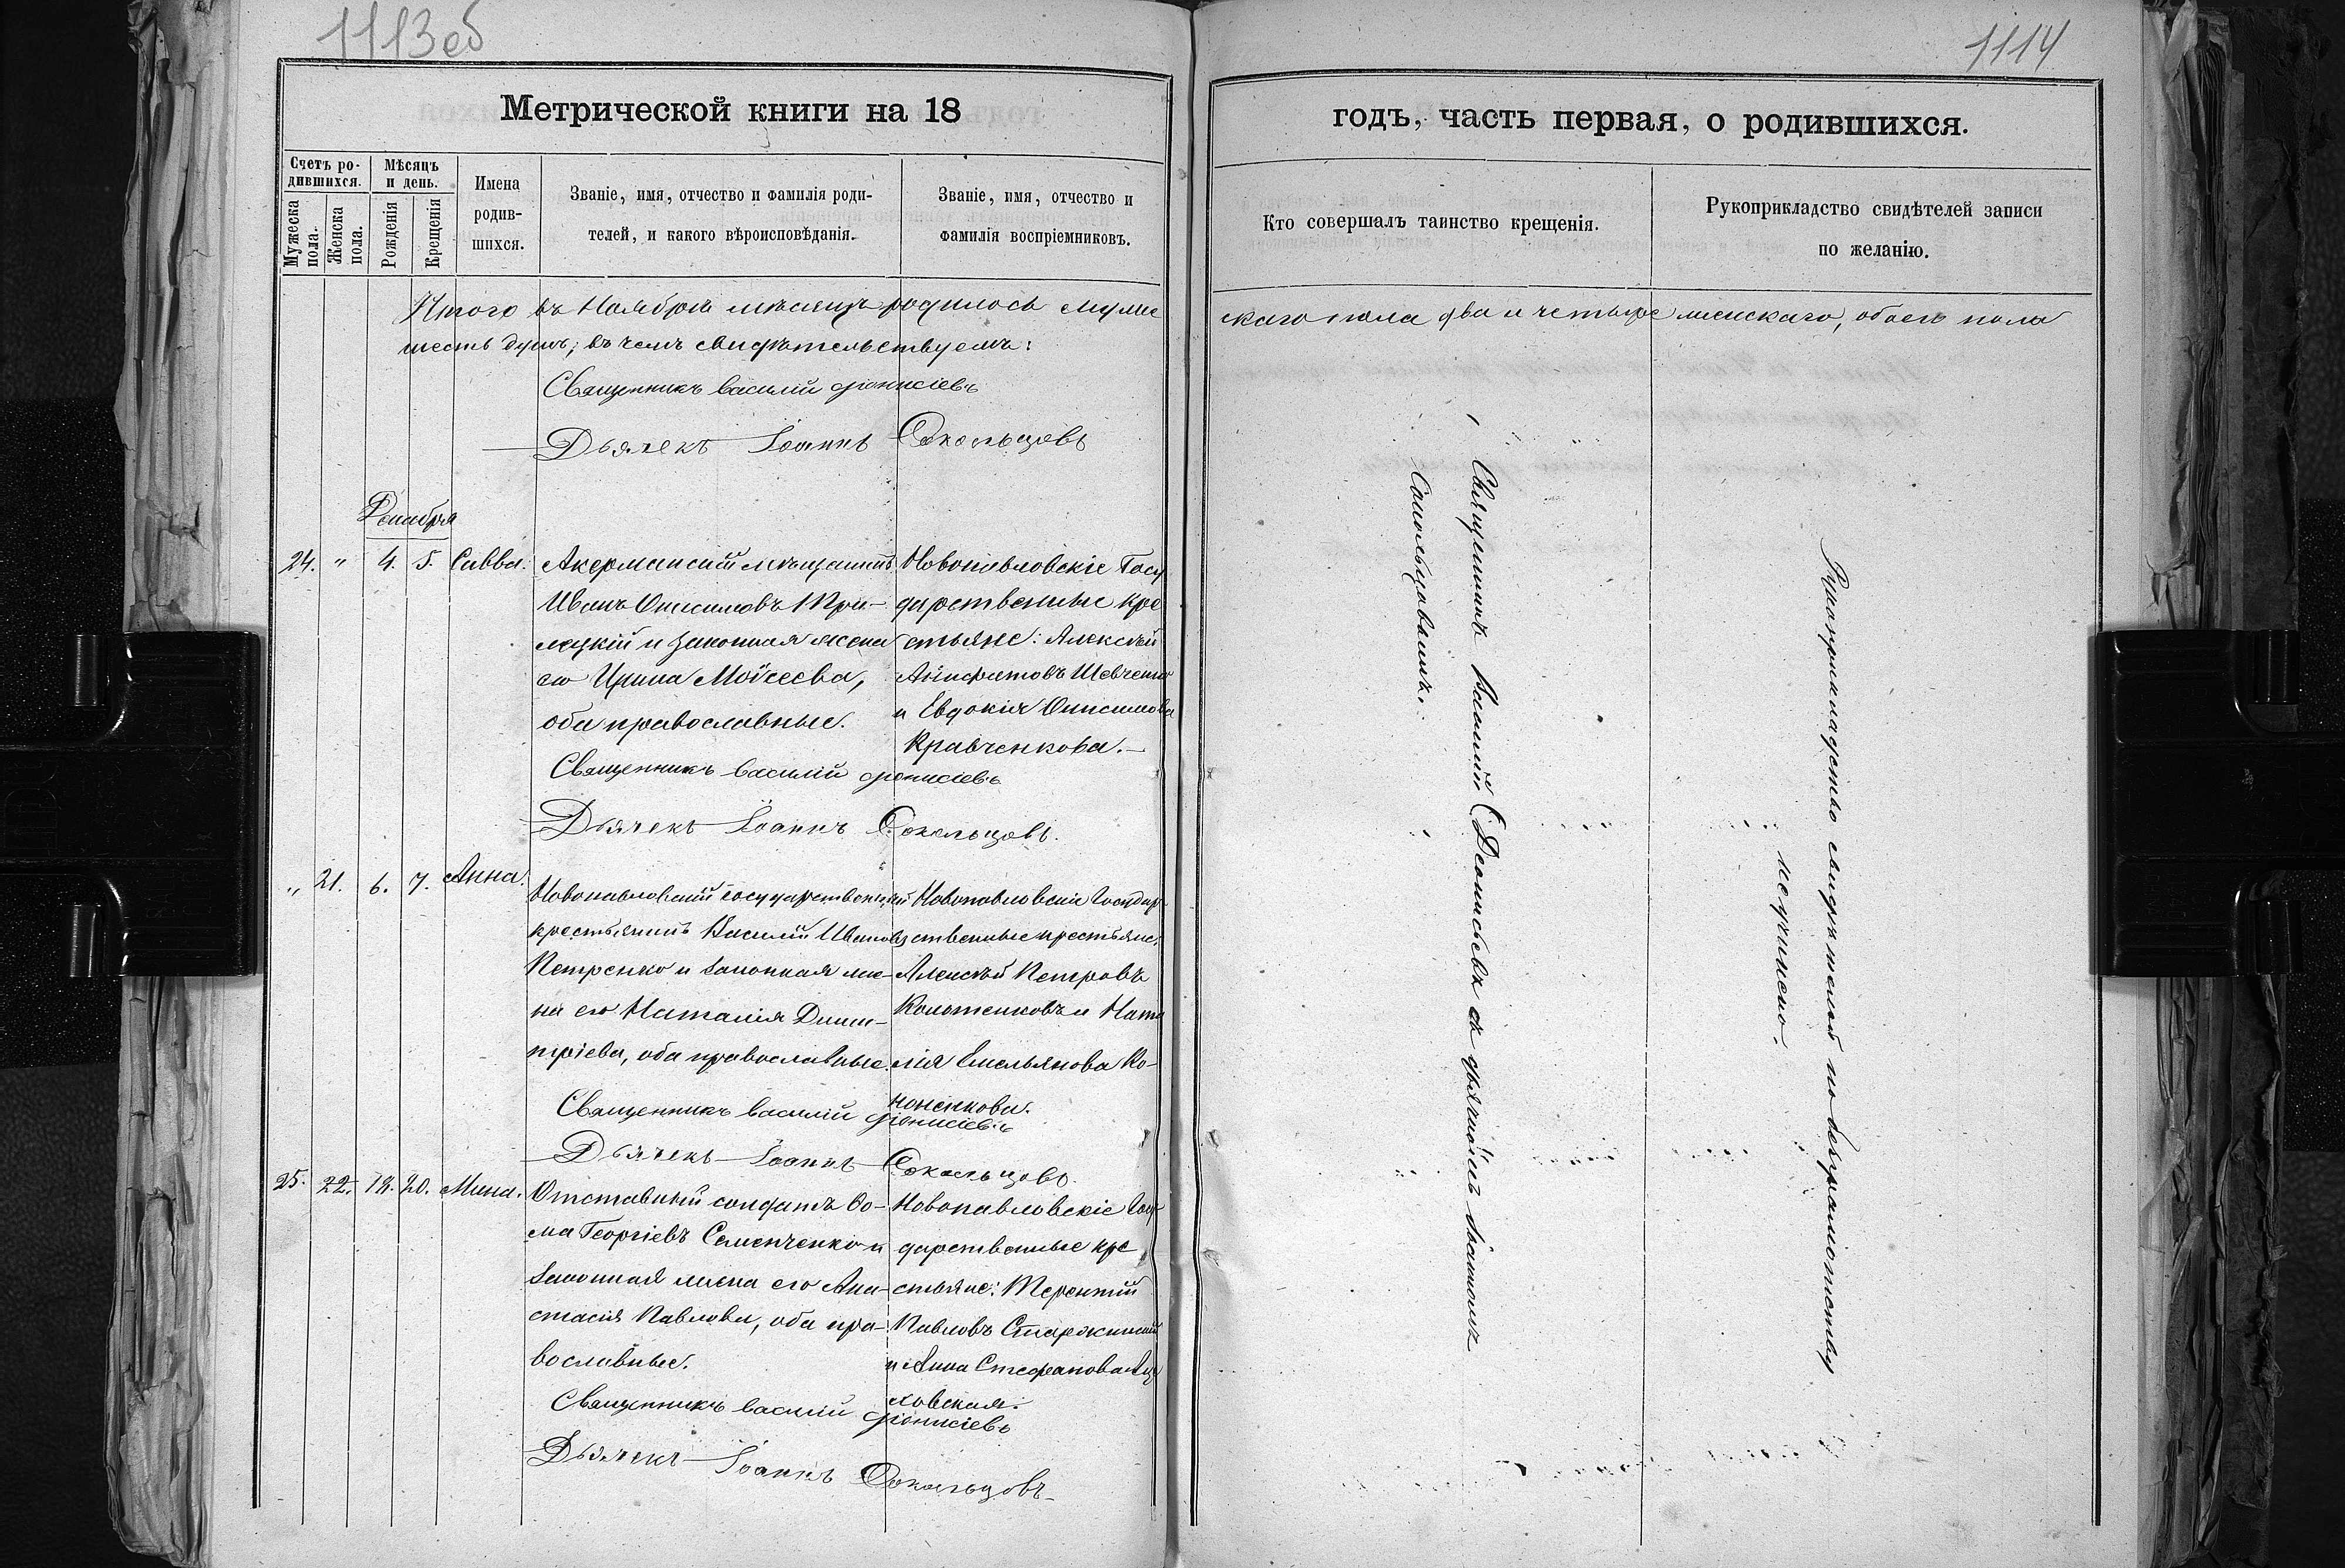 1113об
1114
Метрической книги на 18
годъ, часть первая, о родившихся.
Счетъ родившихся.
Мѣсяцъ и день.
Имена родившихся.
Званіе, имя, отчество и фамилія роди-
телей, и какого вѣроисповѣданія.
Званіе, имя, отчество и
фамилія воспріемниковъ.
Мужеска пола.
Женска пола.
Рожденія
Крещенія
Кто совершалъ таинство крещенія.
Рукоприкладство свидѣтелей записи
по желанію.
Итого въ Ноябрѣ мѣсяцѣ родилось муже
скаго пола два и четыре женскаго, обоего пола
шесть душъ; въ чемъ свидѣтельствуемъ:
Священникъ Василій Діонисіевъ
Дьячекъ Іоаннъ Сокольцовъ
Декабря
24. " 4. 5. Савва.
Акерманскій мѣщанинъ
Иванъ Онисимовъ
и законная жена
его Ирина Моѵсеева,
оба православные.
Новопавловскіе Госу
дарственные кре
стьяне: Алексѣй
Шевченко
и Евдокія Онисимова
Кравченкова.—
Священникъ Василій Діонисіевъ
Дьячекъ Іоаннъ Сокольцовъ.
" 21. 6. 7. Анна.
Новопавловскій государственный
крестьянинъ Василій Ивановъ
Петренко и законная же-
на его Наталія Дими-
тріева, оба православные.
Новопавловскіе Государ
ственные крестьяне:
Алексѣй Петровъ
и Ната
лія Емельянова Ко-
ноненкова.
Священникъ Василій Діонисіевъ
Дьячекъ Іоаннъ Сокольцовъ.
25. 22. 18. 20. Мина.
Отставный солдатъ Ѳо-
ма Георгіевъ Семенченко и
законная жена его Ана-
стасія Павлова, оба пра-
вославные.
Новопавловскіе Госу
дарственные кре
стьяне: Терентій
Павловъ
и Анна Стефанова
ховская.
Священникъ Василій Діонисіевъ
Дьячекъ Іоаннъ Сокольцовъ
Священникъ Василій Деонисьевъ съ дьячкомъ Іоанномъ
Сокольцовымъ.
Рукоприкладство свидѣтелей по безграмотству
неучинено.